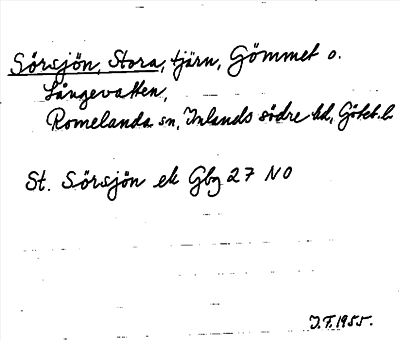 Sörsjön, Stora, tjärn, Gömmet o.
Långevatten,
Romelanda sn, Inlands södre hd, Göteb. l.
St. Sörsjön ek Gbg 27 NO
J.F. 1955.